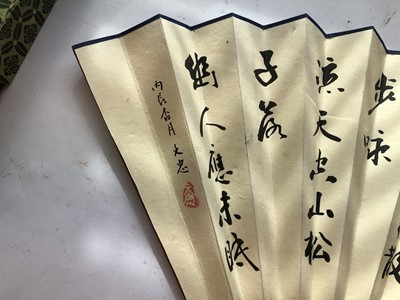 散
步咏
涼天空山松
子落
幽人應未眠
丙辰杏月 文忠